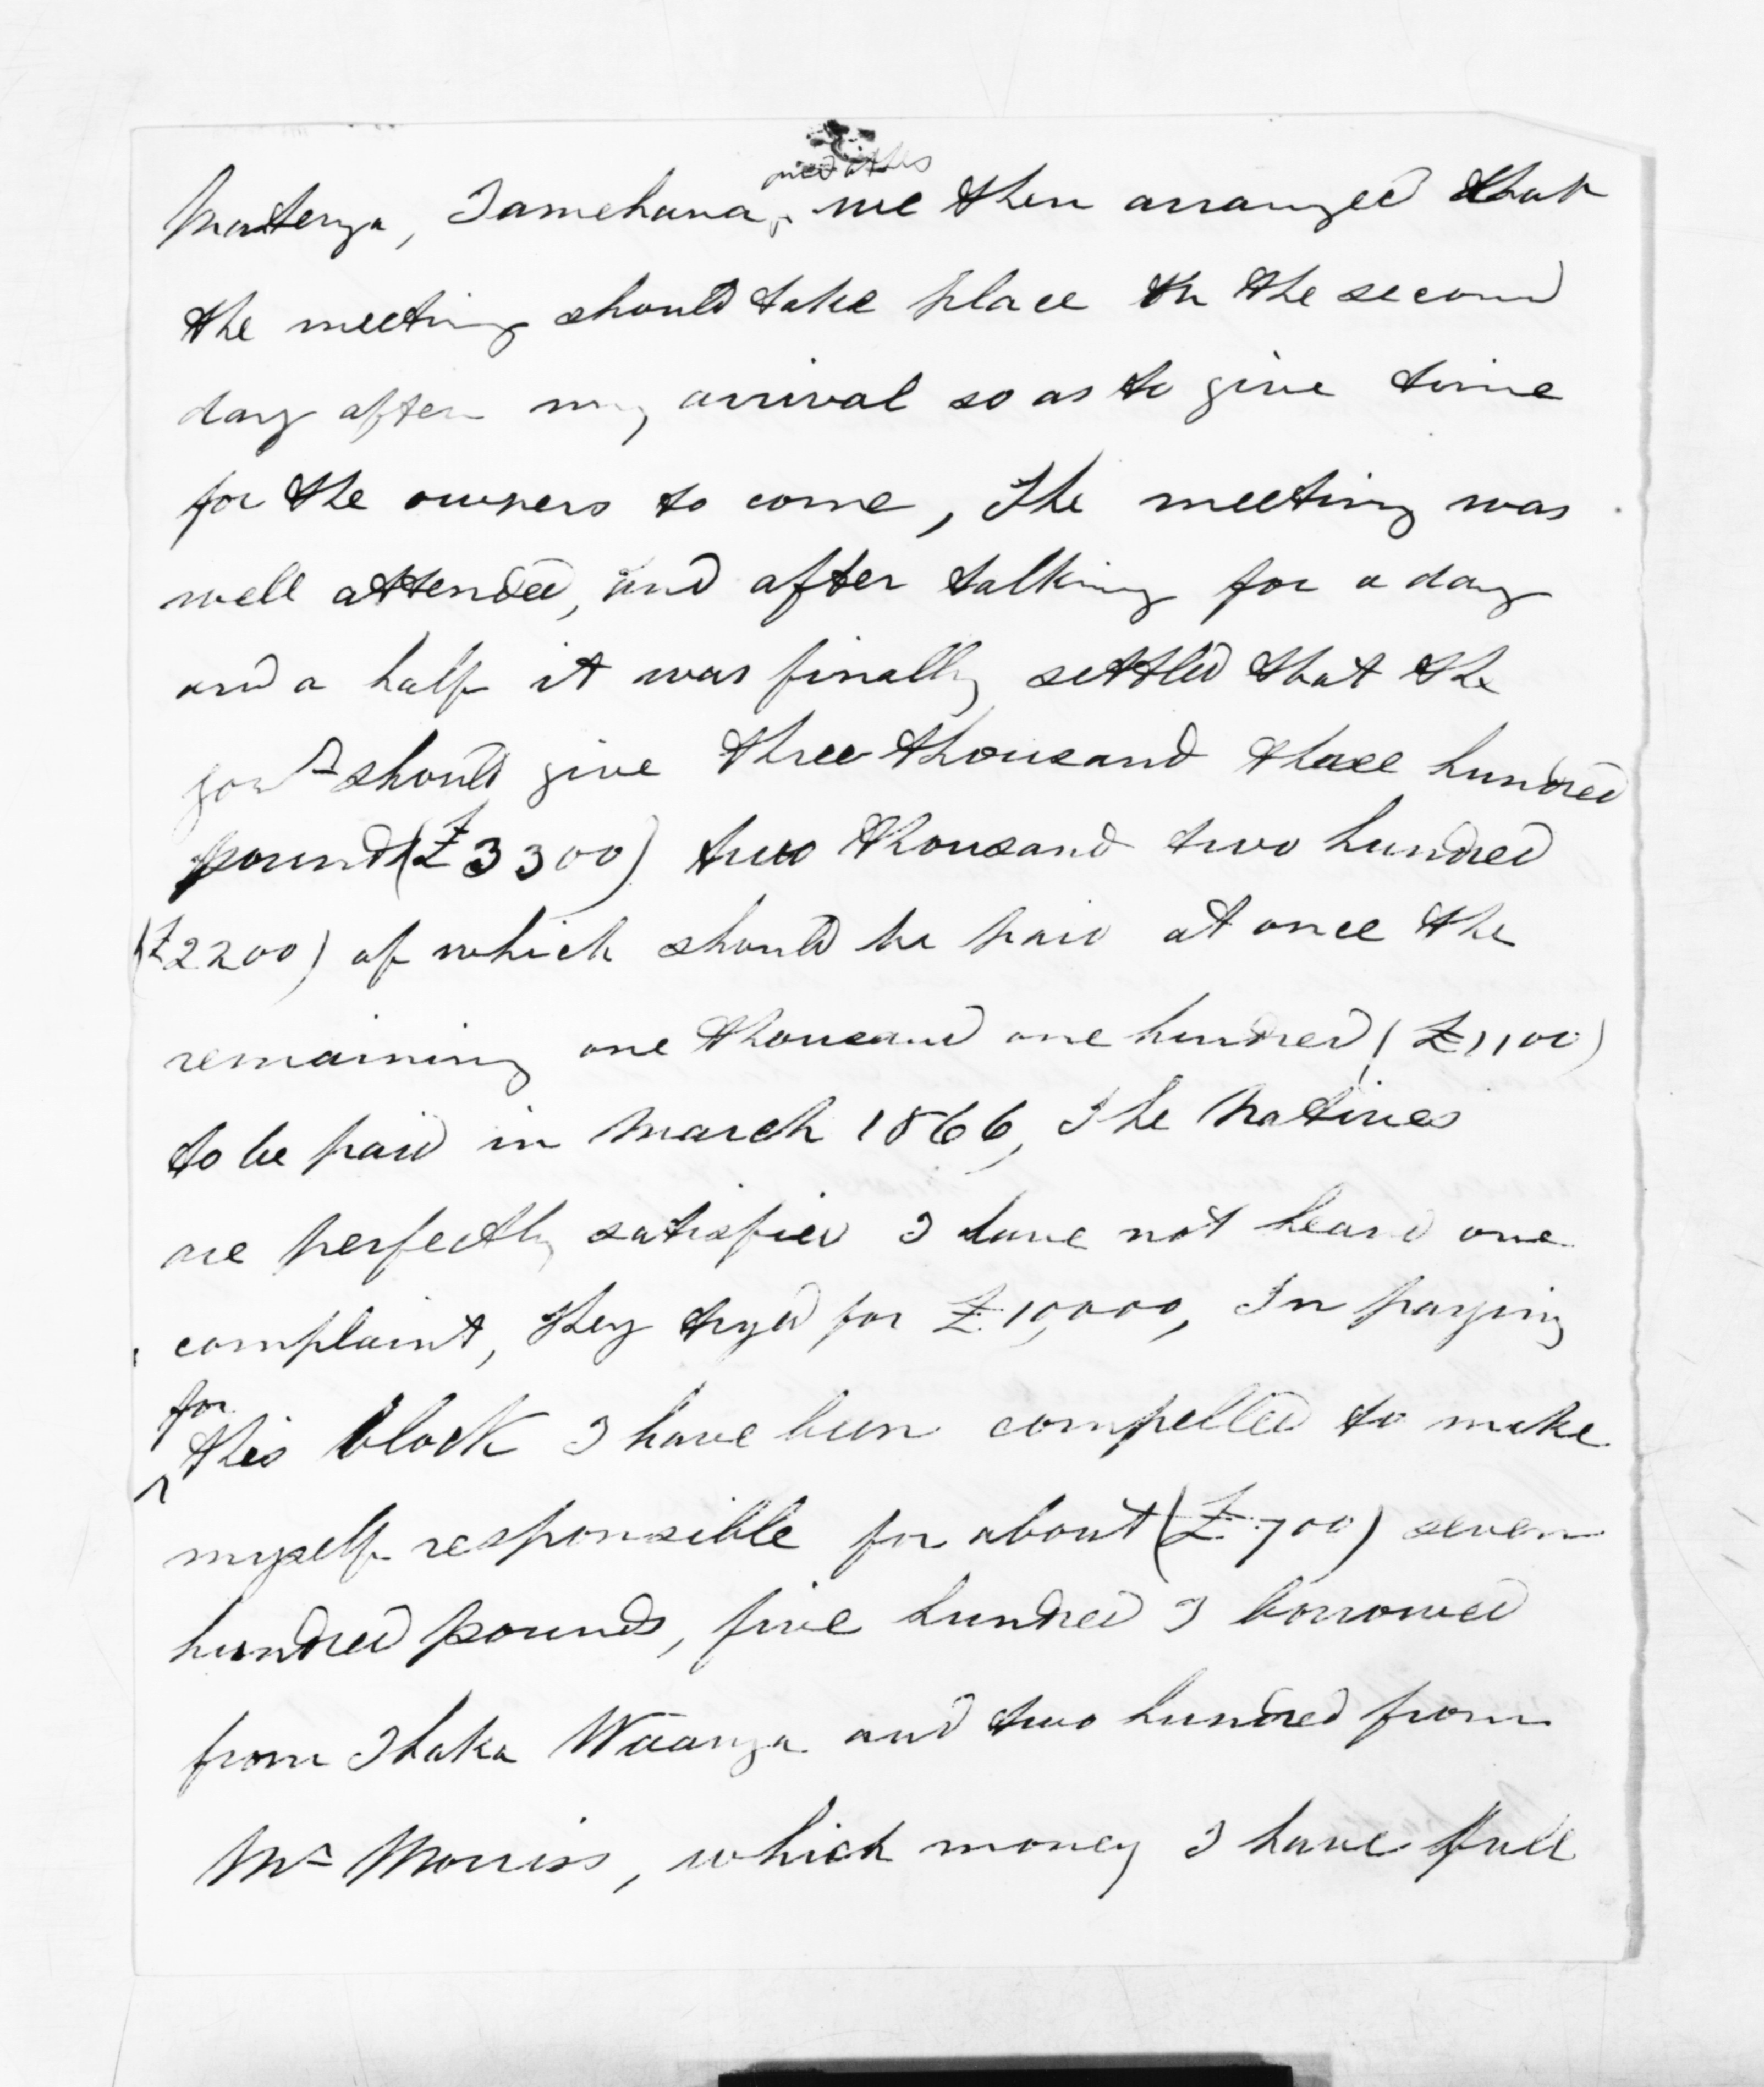 and others
Matenga, Tamehana, we then arranged that
the meeting should take place on the second
day after my arrival so as to give time
for the owners to come, The meeting was
well attended, and after talking for a day
and a half it was finally settled that the
govt should give three thousand three hundred
pound (£3300) two thousand two hundred
(£2200) of which should be paid at once the
remaining one thousand one hundred (£1100)
to be paid in March 1866, The Natives
are perfectly satisfied I have not heard one
complaint, they tryed for £10,000, In paying
for
this block I have been compelled to make
myself responsible for about (£700) seven
hundred pounds, five hundred I borrowed
from Ihaka Waanga and two hundred from
Mr Morriss, which money I have full